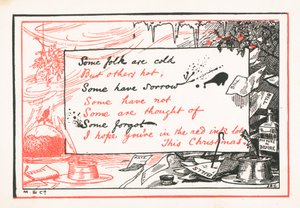 Some folk are cold
But others hot,
Some have sorrow
Some have not
Some are thought of
Some forgot
I hope you're in the red ink lot
This Christmas.
M. & Co.